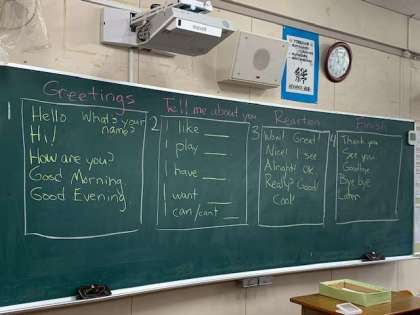 Greetings
Hello What's your
name?
Hi!
How are you?
Good Morning
Good Evening
Tell me about you
2
I like ___
I play ___
I have ___
I want ___
I can/can't ___
Reaction
3
Wow! Great!
Nice! I see
Alright! OK
Really? Good!
Cool!
Finish
4
Thank you
See you
Goodbye
Bye bye
Later
絆